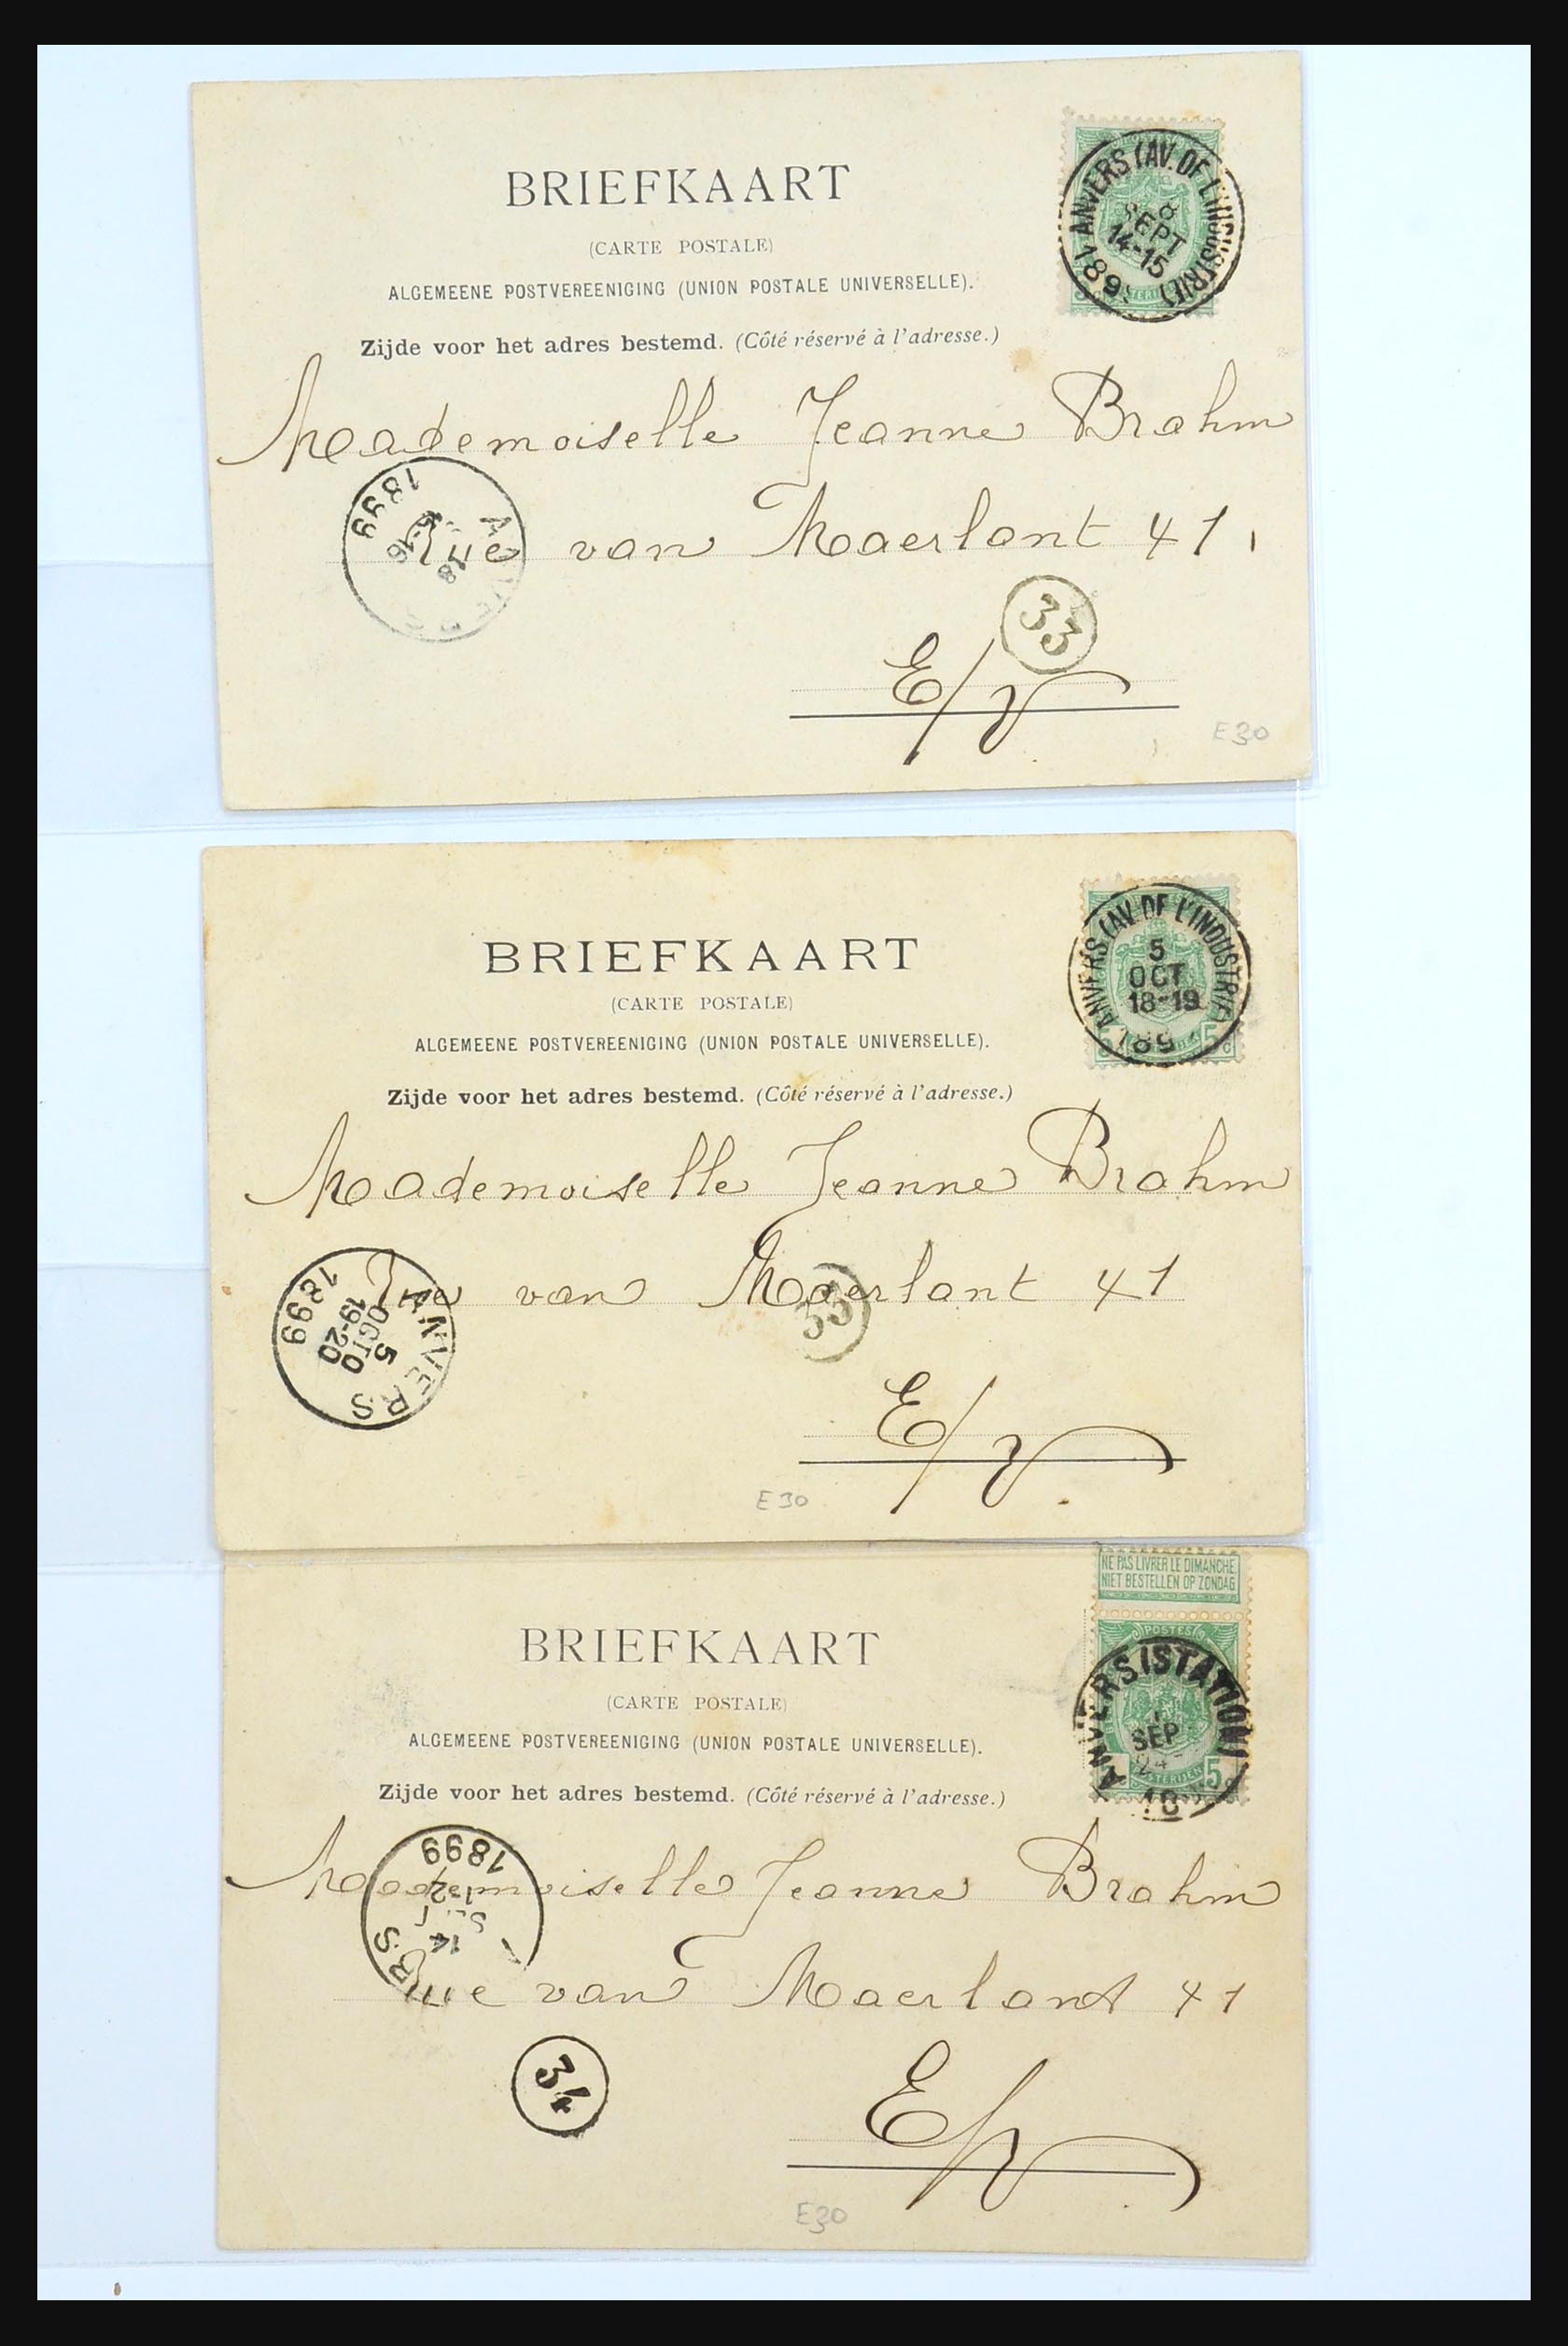 BRIEFKAART
(CARTE POSTALE)
ALGEMEENE POSTVEREENIGING (UNION POSTALE UNIVERSELLE).
Zijde voor het adres bestemd. (Côté réservé à l'adresse.)
ANVERS (AV. DE L'INDUSTRIE)
8
SEPT
14-15
189
Mademoiselle Jeanne Brahm
Rue van Maerlant 41
1899
33
E/V
E30
BRIEFKAART
(CARTE POSTALE)
ALGEMEENE POSTVEREENIGING (UNION POSTALE UNIVERSELLE).
Zijde voor het adres bestemd. (Côté réservé à l'adresse.)
ANVERS (AV. DE L'INDUSTRIE)
5
OCT
18-19
189
5c
Mademoiselle Jeanne Brahm
Rue van Maerlant 41
ANVERS
5
OCTO
19-20
1899
33
E/V
E30
NE PAS LIVRER LE DIMANCHE
NIET BESTELLEN OP ZONDAG
POSTES
ANVERS (STATION)
SEP
18
5c
BRIEFKAART
(CARTE POSTALE)
ALGEMEENE POSTVEREENIGING (UNION POSTALE UNIVERSELLE).
Zijde voor het adres bestemd. (Côté réservé à l'adresse.)
Mademoiselle Jeanne Brahm
Rue van Maerlant 41
1899
34
E/V
E30